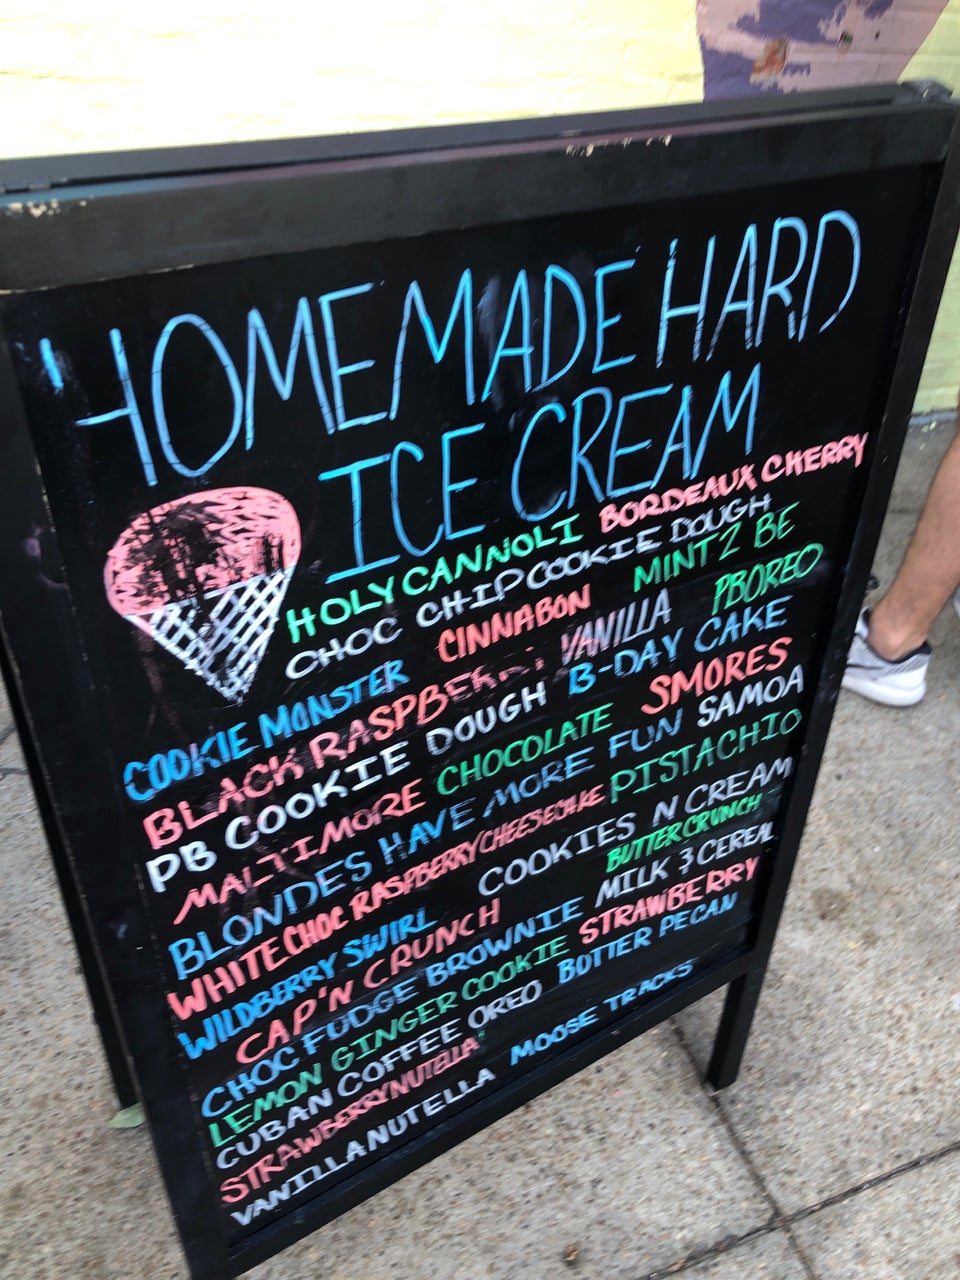 HOMEMADE HARD
ICE CREAM
HOLY CANNOLI BORDEAUX CHERRY
CHOC CHIP COOKIE DOUGH
CINNABON MINT 2 BE
COOKIE MONSTER VANILLA PBOREO
BLACK RASPBERRY B-DAY CAKE
PB COOKIE DOUGH SMORES
MALTIMORE CHOCOLATE SAMOA
BLONDES HAVE MORE FUN
WHITE CHOC RASPBERRY/CHEESECAKE PISTACHIO
WILDBERRY SWIRL COOKIES N CREAM
CAP'N CRUNCH BUTTERCRUNCH
CHOC FUDGE BROWNIE MILK & CEREAL
LEMON GINGER COOKIE STRAWBERRY
CUBAN COFFEE OREO BUTTER PECAN
STRAWBERRY NUTELLA
VANILLA NUTELLA MOOSE TRACKS